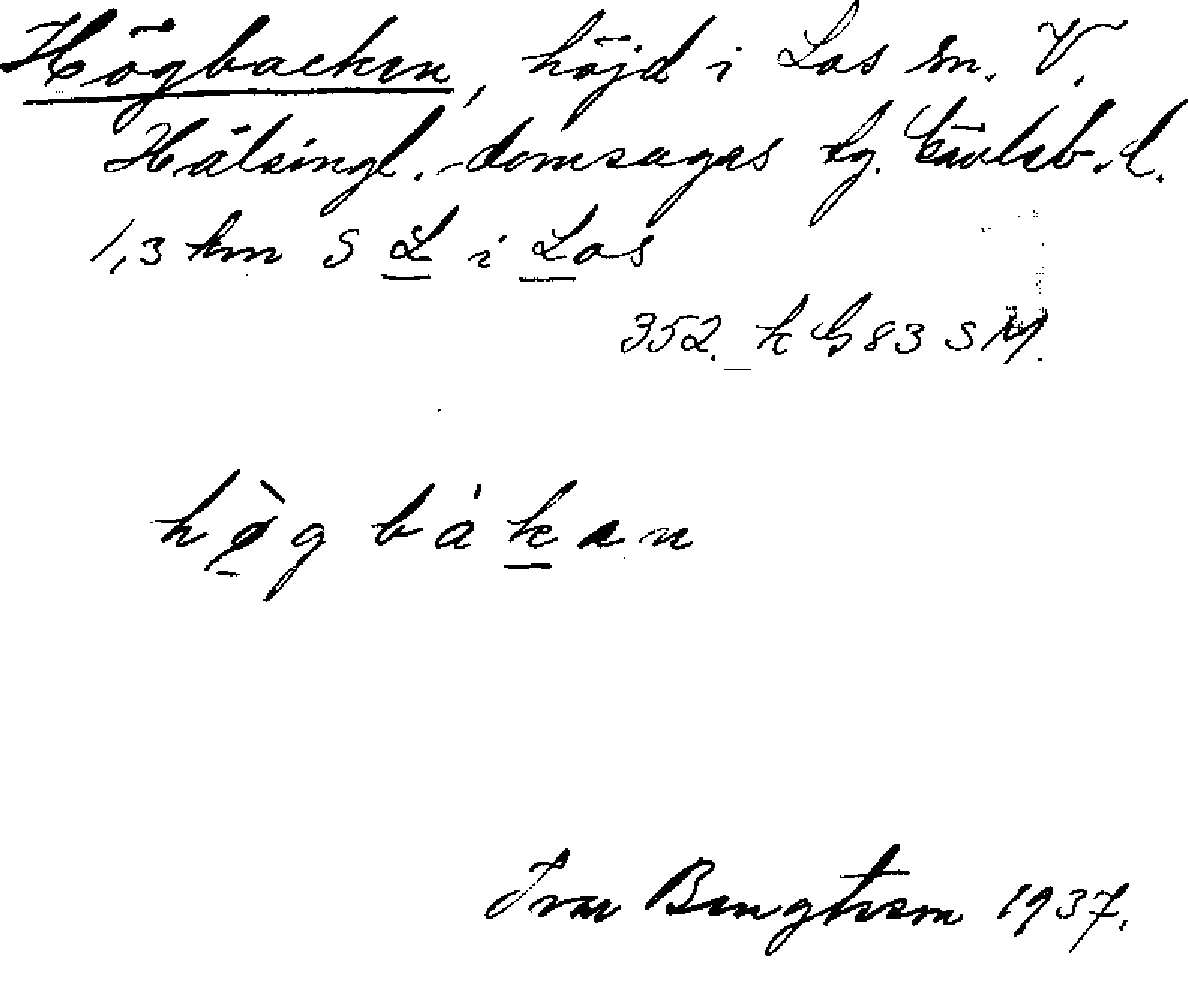 Högbacken, höjd i Los sn. V.
Hälsingl. domsagas tg. Gävleb. l.
1,3 km S L i Los
352. k G 83 S M.
hø̀g bákan
Ivar Bengtsson 1937.